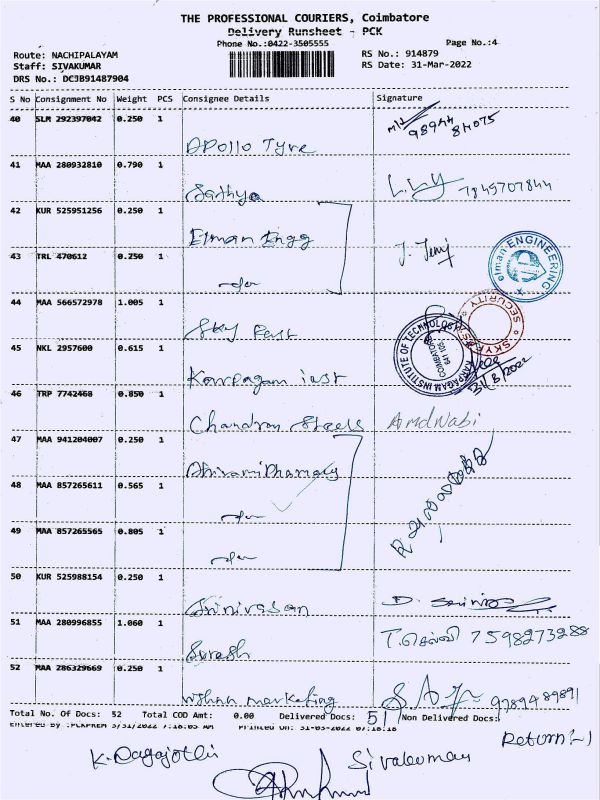 THE PROFESSIONAL COURIERS, Coimbatore
Delivery Runsheet - PCK
Phone No.:0422-3505555
Page No.:4
Route: NACHIPALAYAM
RS No.: 914879
Staff: SIVAKUMAR
RS Date: 31-Mar-2022
DRS No.: DC3B91487904
S No Consignment No Weight PCS Consignee Details Signature
40 SLM 292397042 0.250 1
98944 84075
Apollo Tyre
41 MAA 280932810 0.790 1
Sathya 7845707844
42 KUR 525951256 0.250 1
Elman Engg
elman ENGINEERING
43 TRL 470612 0.250 1
J. Jenj
44 MAA 566572978 1.005 1
Sky Fast
SECURITY
45 NKL 2957600 0.615 1
KARPAGAM INSTITUTE OF TECHNOLOGY
COIMBATORE
641 105
Karpagam inst
31/3/2022
46 TRP 7742468 0.850 1
Chandran Steels Amd Nabi
47 MAA 941204007 0.250 1
Abirami Pharmacy
48 MAA 857265611 0.565 1
49 MAA 857265565 0.805 1
50 KUR 525988154 0.250 1
Srinivasan
51 MAA 280996855 1.060 1
Suresh T. செல்வி 7598273288
52 MAA 286329669 0.250 1
marketing 9789489891
Total No. Of Docs: 52 Total COD Amt: 0.00 Delivered Docs: 51 Non Delivered Docs:
Entered By :PCKPREM 3/31/2022 7:18:05 AM Printed On: 31-03-2022 07:18:18
Return:-1
K. Ragajothi
Sivakumar